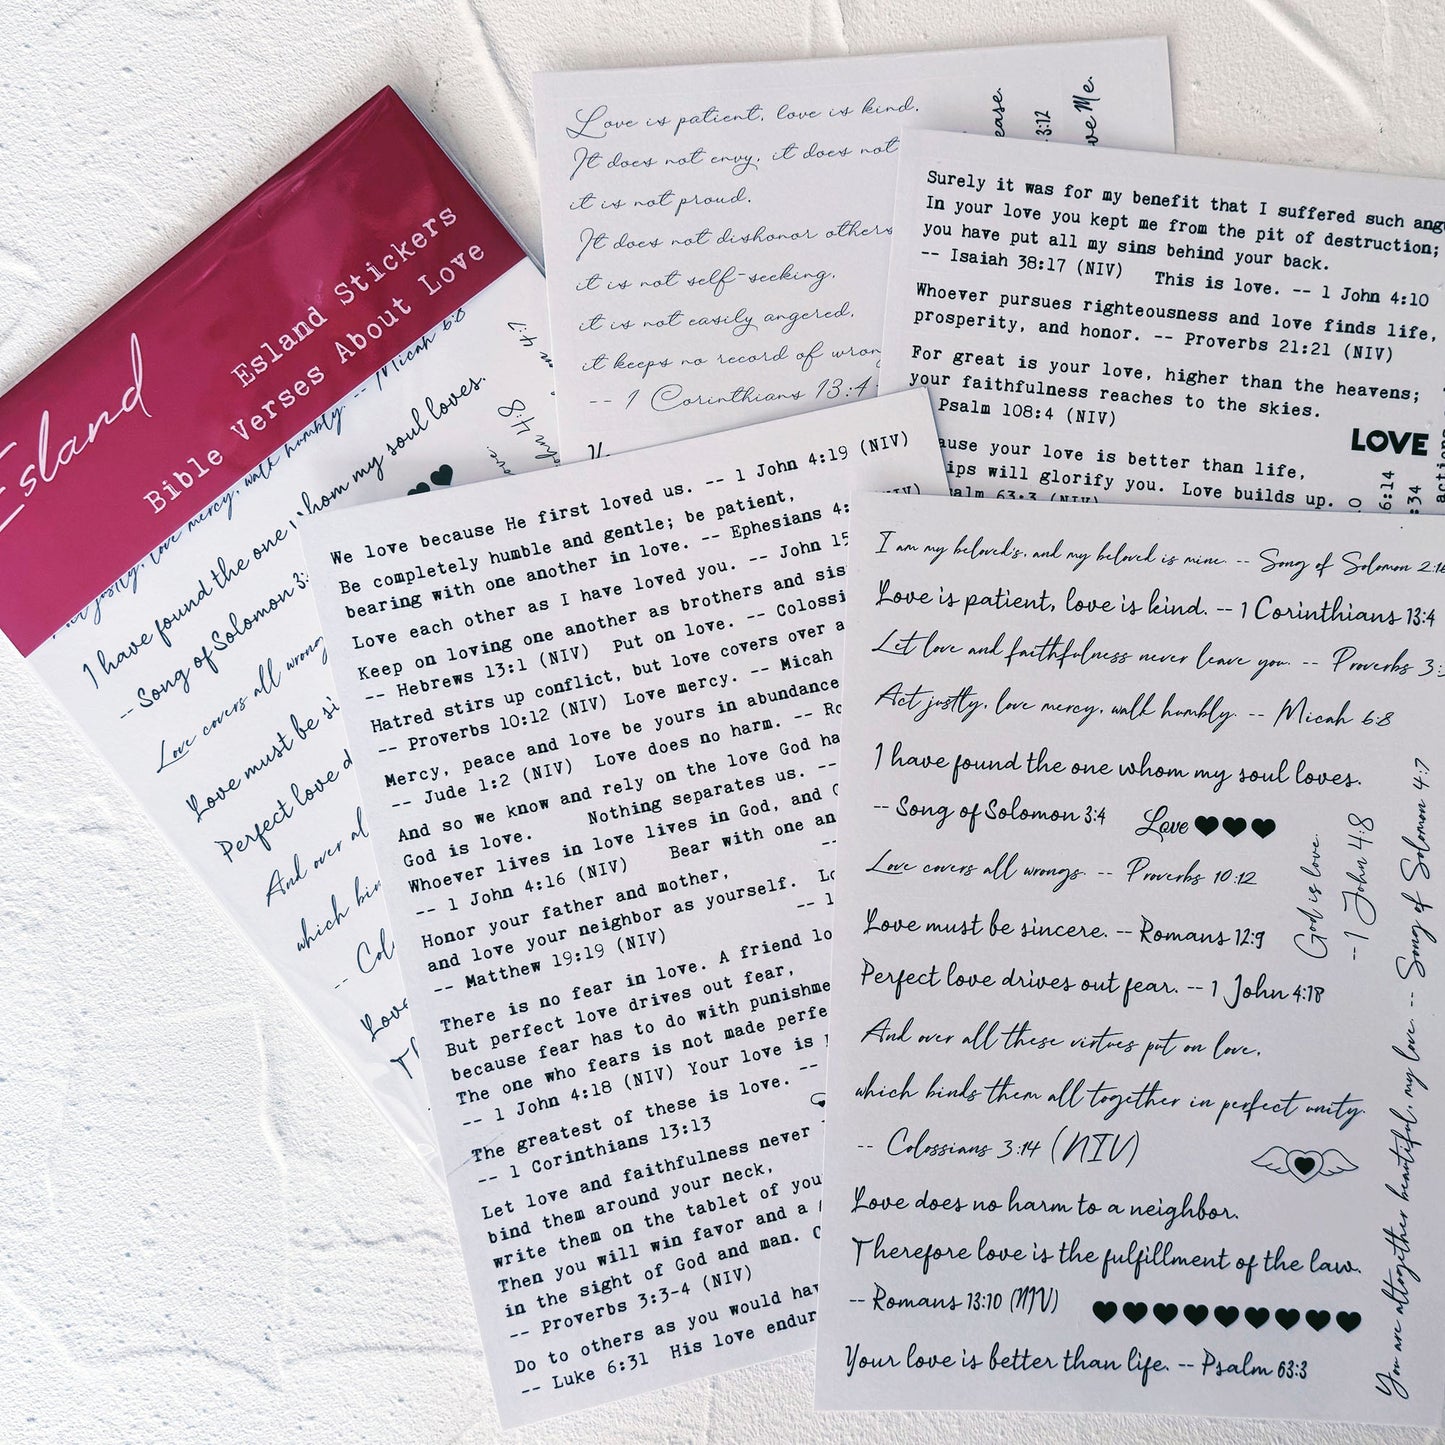 Esland
Esland Stickers
Bible Verses About Love
Act justly, love mercy, walk humbly. -- Micah 6:8
I have found the one whom my soul loves.
-- Song of Solomon 3:
Love covers all wrong
Love must be si
Perfect love d
And over al
which bin
-- Col
Love
Th
John 4:8
m 4:7
Love is patient, love is kind.
It does not envy, it does not
it is not proud.
It does not dishonor others
it is not self-seeking,
it is not easily angered,
it keeps no record of wrong
-- 1 Corinthians 13:4
ease.
3:12
ve Me.
Surely it was for my benefit that I suffered such ang
In your love you kept me from the pit of destruction;
you have put all my sins behind your back.
-- Isaiah 38:17 (NIV) This is love. -- 1 John 4:10
Whoever pursues righteousness and love finds life,
prosperity, and honor. -- Proverbs 21:21 (NIV)
For great is your love, higher than the heavens;
your faithfulness reaches to the skies.
Psalm 108:4 (NIV)
LOVE
ause your love is better than life,
ips will glorify you. Love builds up.
salm 63:3 (NIV)
6:14
:34
actions
We love because He first loved us. -- 1 John 4:19 (NIV)
Be completely humble and gentle; be patient,
bearing with one another in love. -- Ephesians 4:
Love each other as I have loved you. -- John 15
Keep on loving one another as brothers and sis
-- Hebrews 13:1 (NIV) Put on love. -- Colossi
Hatred stirs up conflict, but love covers over a
-- Proverbs 10:12 (NIV) Love mercy. -- Micah
Mercy, peace and love be yours in abundance
-- Jude 1:2 (NIV) Love does no harm. -- Ro
And so we know and rely on the love God ha
God is love. Nothing separates us. --
Whoever lives in love lives in God, and G
-- 1 John 4:16 (NIV) Bear with one an
Honor your father and mother,
and love your neighbor as yourself. Lo
-- Matthew 19:19 (NIV) -- 1
There is no fear in love. A friend lo
But perfect love drives out fear,
because fear has to do with punishme
The one who fears is not made perfe
-- 1 John 4:18 (NIV) Your love is
The greatest of these is love. --
-- 1 Corinthians 13:13
Let love and faithfulness never
bind them around your neck,
write them on the tablet of you
Then you will win favor and a
in the sight of God and man.
-- Proverbs 3:3-4 (NIV)
Do to others as you would hav
-- Luke 6:31 His love endur
I am my beloved's, and my beloved is mine. -- Song of Solomon 2:16
Love is patient, love is kind. -- 1 Corinthians 13:4
Let love and faithfulness never leave you. -- Proverbs 3:3
Act justly, love mercy, walk humbly. -- Micah 6:8
I have found the one whom my soul loves.
-- Song of Solomon 3:4 Love
Love covers all wrongs. -- Proverbs 10:12
Love must be sincere. -- Romans 12:9
Perfect love drives out fear. -- 1 John 4:18
And over all these virtues put on love,
which binds them all together in perfect unity.
-- Colossians 3:14 (NIV)
Love does no harm to a neighbor.
Therefore love is the fulfillment of the law.
-- Romans 13:10 (NIV)
Your love is better than life. -- Psalm 63:3
God is love.
-- 1 John 4:8
You are altogether beautiful, my love. -- Song of Solomon 4:7